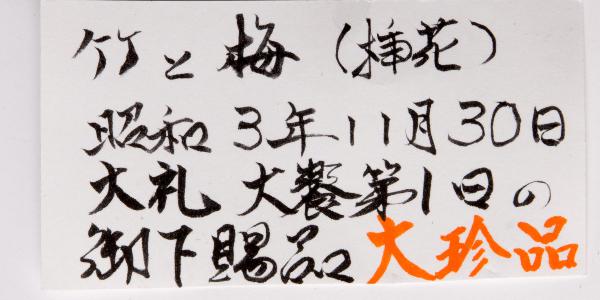 竹と梅（挿花）
昭和3年11月30日
大礼 大饗第1日の
御下賜品 大珍品